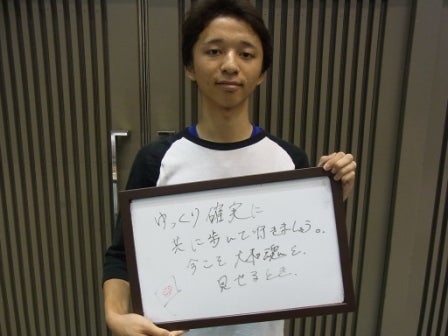 ゆっくり確実に
共に歩いて行きましょう。
今こそ大和魂を、
見せるとき、